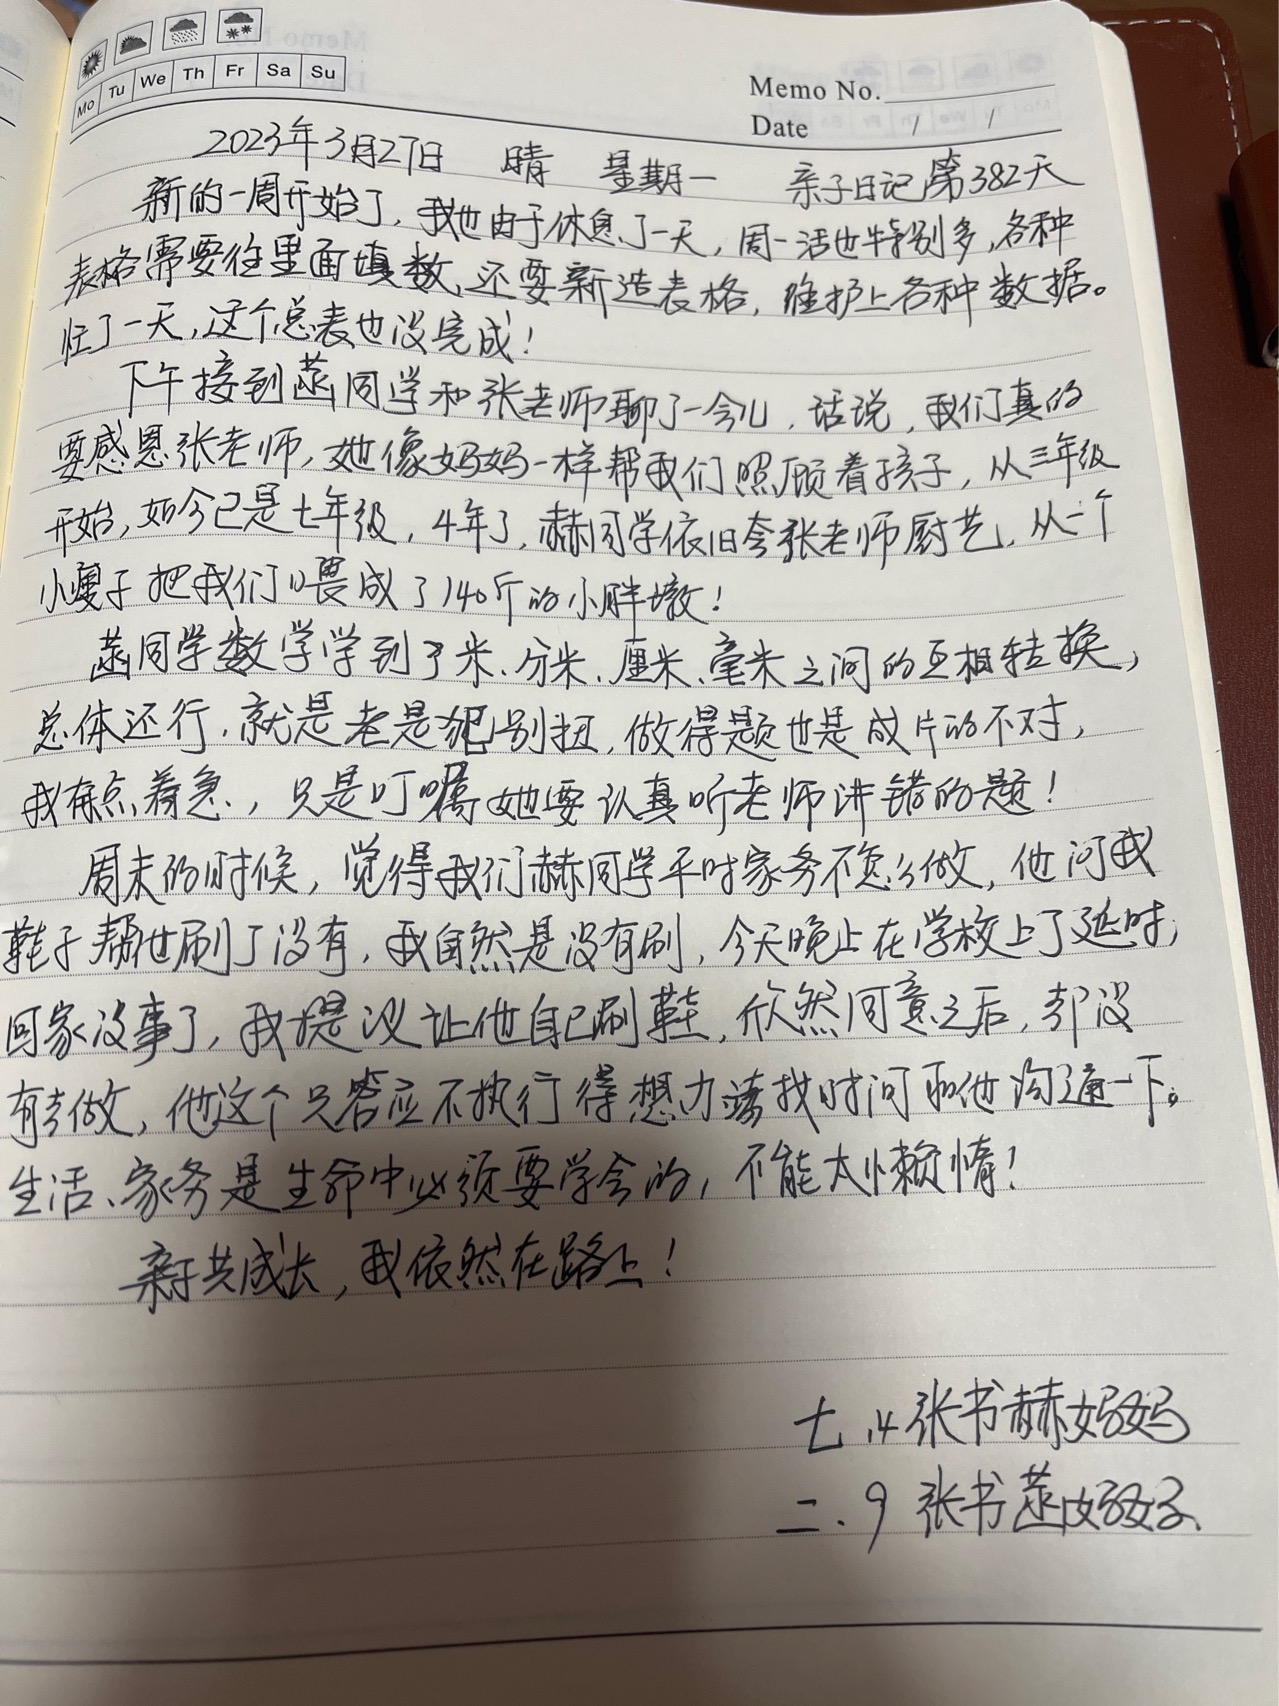 Mo Tu We Th Fr Sa Su
Memo No.
Date / /
2023年3月27日 晴 星期一 亲子日记第382天
新的一周开始了，我也由于休息了一天，周一活也特别多，各种
表格需要往里面填数，还要新造表格，维护上各种数据。
忙了一天，这个总表也没完成！
下午接到菡同学和张老师聊了一会儿，话说，我们真的
要感恩张老师，她像妈妈一样帮我们照顾着孩子，从三年级
开始，如今已是七年级，4年了，赫同学依旧夸张老师厨艺，从一个
小瘦子把我们喂成了140斤的小胖墩！
菡同学数学学到了米、分米、厘米、毫米之间的互相转换，
总体还行，就是老是犯别扭，做得题也是成片的不对，
我有点着急，只是叮嘱她要认真听老师讲错的题！
周末的时候，觉得我们赫同学平时家务不怎么做，他问我
鞋子帮他刷了没有，我自然是没有刷，今天晚上在学校上了延时，
回家没事了，我提议让他自己刷鞋，欣然同意之后，却没
有去做，他这个只答应不执行得想办法找时间和他沟通一下。
生活、家务是生命中必须要学会的，不能太懒惰！
亲子共成长，我依然在路上！
七.14 张书赫妈妈
二.9 张书菡妈妈